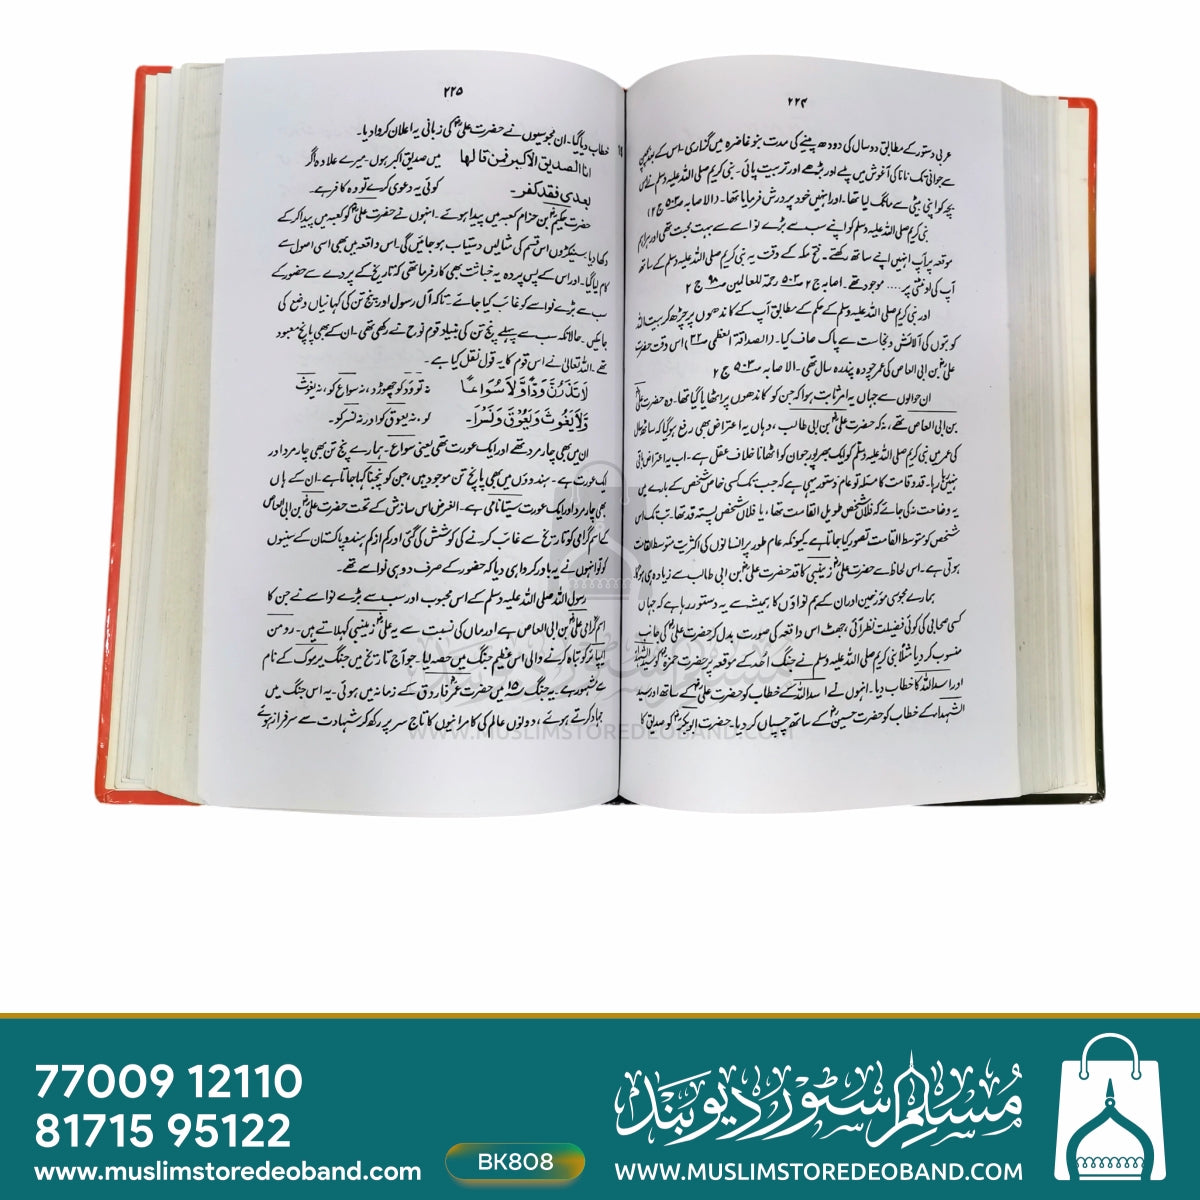 ۲۲۴
عربی دستور کے مطابق دو سال کی دودھ پینے کی مدت بنو غاضرہ میں گزاری۔ اس کے بعد بچپن
سے جوانی تک نانا کی آغوش میں پلے اور بڑھے اور تربیت پائی۔ نبی کریم صلی اللہ علیہ وسلم نے اس
بچہ کو اپنی بیٹی سے مانگ لیا تھا۔ اور انہیں خود پرورش فرمایا تھا۔ (الاصابہ صـ۵۰۳ ج ۲)
نبی کریم صلی اللہ علیہ وسلم کو اپنے سب سے بڑے نواسے سے بہت محبت تھی اور ہر اہم
موقعہ پر آپ انہیں اپنے ساتھ رکھتے۔ فتح مکہ کے وقت یہ نبی کریم صلی اللہ علیہ وسلم کے ساتھ
آپ کی اونٹنی پر .... موجود تھے۔ اصابہ ج ۲ صـ۵۰۳ رحمۃ للعالمین صـ۹۸ ج ۲
اور نبی کریم صلی اللہ علیہ وسلم کے حکم کے مطابق آپ کے کاندھوں پر چڑھ کر بیت اللہ
کو بتوں کی آلائش و نجاست سے پاک صاف کیا۔ (الصداقۃ العظمی صـ۳۲) اس وقت حضرت
علیؓ بن ابی العاص کی عمر چودہ پندرہ سال تھی۔ الاصابہ صـ۵۰۳ ج ۲
ان حوالوں سے جہاں یہ امر ثابت ہوا کہ جن کو کاندھوں پر اٹھایا گیا تھا۔ وہ حضرت علیؓ
بن ابی العاص تھے، نہ کہ حضرت علیؓ بن ابی طالب، وہاں یہ اعتراض بھی رفع ہو گیا کہ ساٹھ سال
کی عمر میں نبی کریم صلی اللہ علیہ وسلم کو ایک بھرپور جوان کو اٹھانا خلاف عقل ہے۔ اب یہ اعتراض باقی
نہیں رہا۔ قد و قامت کا مسئلہ تو عام دستور یہی ہے کہ جب تک کسی خاص شخص کے بارے میں
یہ وضاحت نہ کی جائے کہ فلاں شخص طویل القامت تھا، یا فلاں شخص پستہ قد تھا۔ تب تک اس
شخص کو متوسط القامت تصور کیا جاتا ہے کیونکہ عام طور پر انسانوں کی اکثریت متوسط القامت
ہوتی ہے۔ اس لحاظ سے حضرت علیؓ زینبی کا قد حضرت علیؓ بن ابی طالب سے زیادہ ہی ہوگا
ہمارے مجوسی مؤرخین اور ان کے ہم نواؤں کا ہمیشہ سے یہ دستور رہا ہے کہ جہاں
کسی صحابی کی کوئی فضیلت نظر آئی، جھٹ اس واقعہ کی صورت بدل کر حضرت علیؓ کی جانب
منسوب کر دیا مثلا نبی کریم صلی اللہ علیہ وسلم نے جنگ احد کے موقعہ پر حضرت حمزہؓ کو سید الشہداء
اور اسد اللہ کا خطاب دیا۔ انہوں نے اسد اللہ کے خطاب کو حضرت علیؓ کے ساتھ اور سید
الشہداء کے خطاب کو حضرت حسینؓ کے ساتھ چسپاں کر دیا۔ حضرت ابوبکرؓ کو صدیق کا
۲۲۵
خطاب دیا گیا۔ ان مجوسیوں نے حضرت علیؓ کی زبانی یہ اعلان کروا دیا۔
انا الصدیق الاکبر فمن قالھا میں صدیق اکبر ہوں۔ میرے علاوہ اگر
بعدی فقد کفر۔ کوئی یہ دعوی کرے تو وہ کافر ہے۔
حضرت حکیمؓ بن حزام کعبہ میں پیدا ہوئے۔ انہوں نے حضرت علیؓ کو کعبہ میں پیدا کر کے
دکھا دیا۔ سینکڑوں اس قسم کی مثالیں دستیاب ہو جائیں گی۔ اس واقعہ میں بھی اسی اصول سے
کام لیا گیا۔ اور اس کے پس پردہ یہ خباثت بھی کارفرما تھی کہ تاریخ کے پردے سے حضور کے
سب سے بڑے نواسے کو غائب کیا جائے۔ تاکہ آل رسول اور پنج تن کی کہانیاں وضع کی
جا سکیں۔ حالانکہ سب سے پہلے پنج تن کی بنیاد قوم نوح نے رکھی تھی۔ ان کے بھی پانچ معبود
تھے۔ اللہ تعالی نے اس قوم کا یہ قول نقل کیا ہے۔
لَا تَذَرُنَّ وَدًّا وَّلَا سُوَاعًا نہ تو ود کو چھوڑو، نہ سواع کو، نہ یغوث
وَّلَا یَغُوْثَ وَیَعُوْقَ وَنَسْرًا۔ کو، نہ یعوق کو اور نہ نسر کو۔
ان میں بھی چار مرد تھے اور ایک عورت تھی یعنی سواع۔ ہمارے پنج تن بھی چار مرد اور
ایک عورت ہے۔ ہندوؤں میں بھی پانچ تن موجود ہیں، جن کو پنجتا کہا جاتا ہے۔ ان کے ہاں
بھی چار مرد اور ایک عورت سیتا نامی ہے۔ الغرض اس سازش کے تحت حضرت علیؓ بن ابی العاص
کے اسم گرامی کو تاریخ سے غائب کرنے کی کوشش کی گئی اور کم از کم ہندو پاکستان کے سنیوں
کو تو انہوں نے یہ باور کروا ہی دیا کہ حضور کے صرف دو ہی نواسے تھے۔
رسول اللہ صلی اللہ علیہ وسلم کے اس محبوب اور سب سے بڑے نواسے نے جن کا
اسم گرامی علیؓ بن ابی العاص ہے اور ماں کی نسبت سے یہ علیؓ زینبی کہلاتے ہیں۔ رومن
ایمپائر کو تباہ کرنے والی اس عظیم جنگ میں حصہ لیا۔ جو آج تاریخ میں جنگ یرموک کے نام
سے مشہور ہے۔ یہ جنگ ۱۵ھ میں حضرت عمرؓ فاروق کے زمانہ میں ہوئی۔ یہ اس جنگ میں
جہاد کرتے ہوئے، دونوں عالم کی کامرانیوں کا تاج سر پر رکھ کر شہادت سے سرفراز ہوئے
WWW.MUSLIMSTOREDEOBAND.COM
77009 12110
81715 95122
www.muslimstoredeoband.com
BK808
مسلم سٹور دیوبند
WWW.MUSLIMSTOREDEOBAND.COM